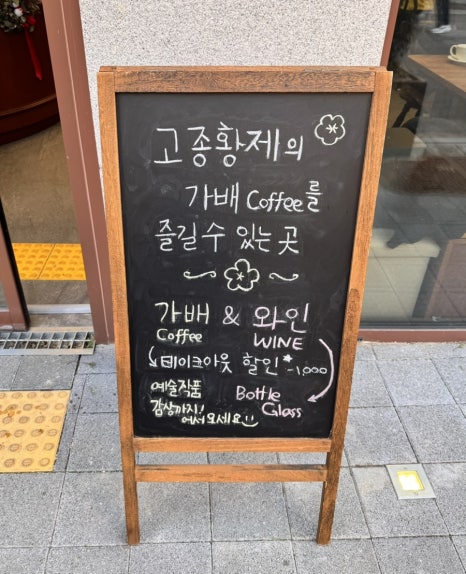 고종황제의
가배 Coffee를
즐길 수 있는 곳
가배 & 와인
Coffee WINE
테이크아웃 할인* -1,000
예술작품 Bottle
감상까지! Glass
어서오세요